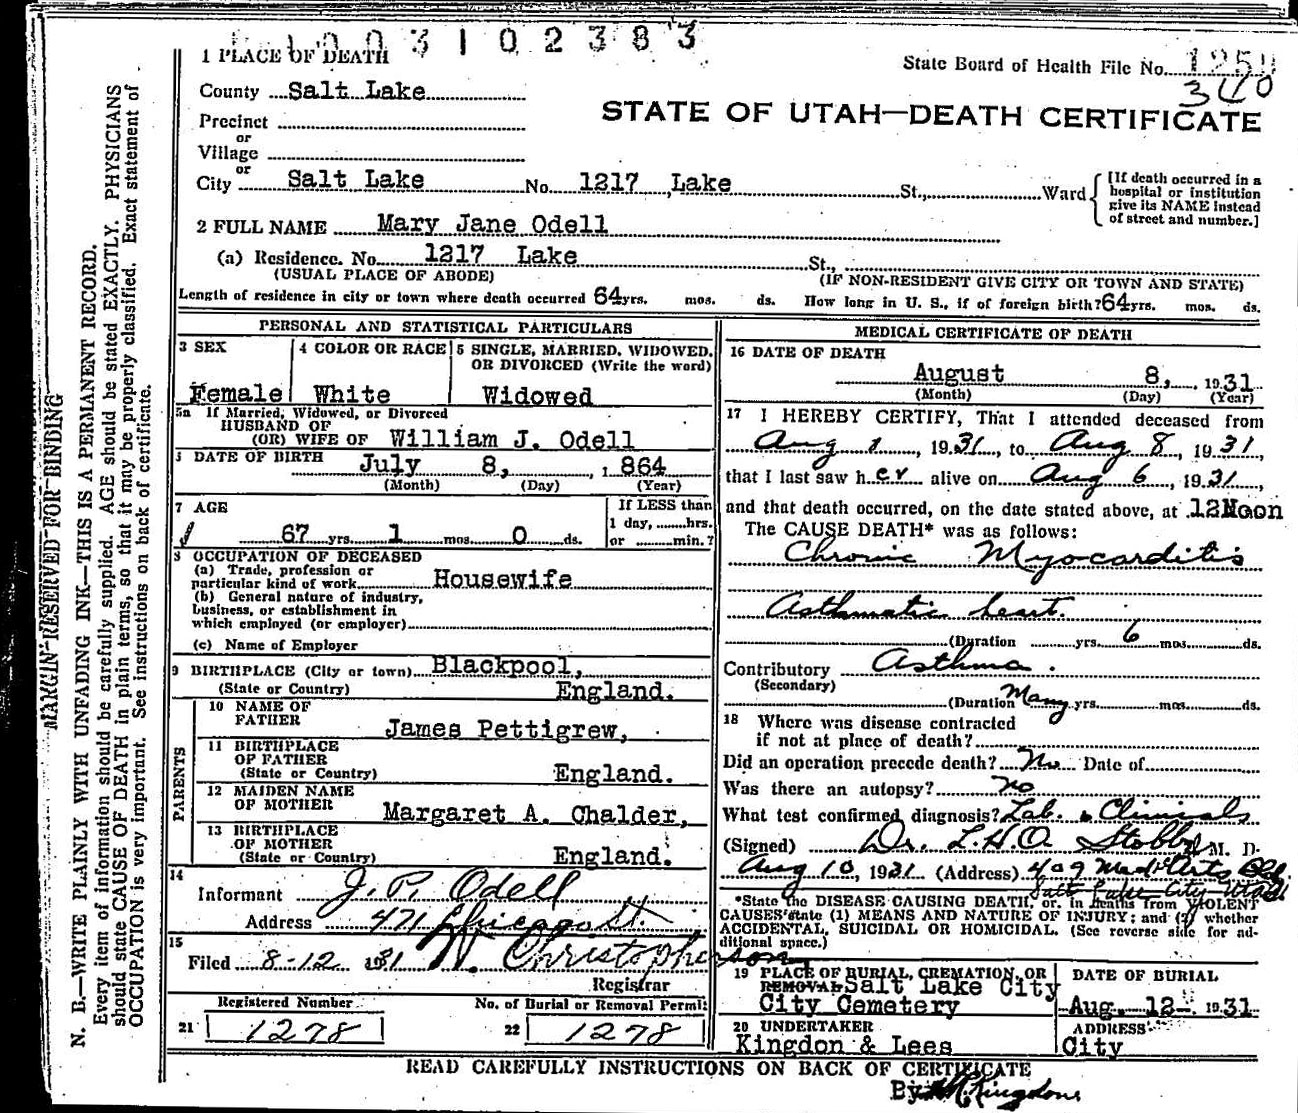 1003102383
1 PLACE OF DEATH
State Board of Health File No. 125
340
County Salt Lake
STATE OF UTAH—DEATH CERTIFICATE
Precinct
or
Village
or
City Salt Lake No. 1217 Lake St., Ward
[If death occurred in a hospital or institution give its NAME instead of street and number.]
2 FULL NAME Mary Jane Odell
(a) Residence. No. 1217 Lake St.,
(USUAL PLACE OF ABODE) (IF NON-RESIDENT GIVE CITY OR TOWN AND STATE)
Length of residence in city or town where death occurred 64 yrs. mos. ds. How long in U. S., if of foreign birth? 64 yrs. mos. ds.
PERSONAL AND STATISTICAL PARTICULARS
3 SEX
4 COLOR OR RACE
5 SINGLE, MARRIED, WIDOWED,
OR DIVORCED (Write the word)
Female White Widowed
5a If Married, Widowed, or Divorced
HUSBAND OF
(OR) WIFE OF William J. Odell
DATE OF BIRTH July 8, 1864
(Month) (Day) (Year)
7 AGE
If LESS than
1 day, hrs.
or min.?
67 yrs. 1 mos. 0 ds.
8 OCCUPATION OF DECEASED
(a) Trade, profession or
particular kind of work Housewife
(b) General nature of industry,
business, or establishment in
which employed (or employer)
(c) Name of Employer
9 BIRTHPLACE (City or town) Blackpool,
(State or Country) England.
PARENTS
10 NAME OF
FATHER James Pettigrew,
11 BIRTHPLACE
OF FATHER
(State or Country) England.
12 MAIDEN NAME
OF MOTHER Margaret A. Chalder,
13 BIRTHPLACE
OF MOTHER
(State or Country) England.
14
Informant J. P. Odell
Address 471 Chicago St.
15
Filed 8-12 1931 Christopherson
Registrar
Registered Number
21 1278
No. of Burial or Removal Permit
22 1278
MEDICAL CERTIFICATE OF DEATH
16 DATE OF DEATH
August 8, 1931
(Month) (Day) (Year)
17 I HEREBY CERTIFY, That I attended deceased from
Aug 1, 1931, to Aug 8, 1931,
that I last saw her alive on Aug 6, 1931,
and that death occurred, on the date stated above, at 12Noon
The CAUSE DEATH* was as follows:
Chronic Myocarditis
Asthmatic heart.
(Duration yrs. 6 mos. ds.
Contributory Asthma.
(Secondary)
(Duration Many yrs. mos. ds.
18 Where was disease contracted
if not at place of death?
Did an operation precede death? No Date of
Was there an autopsy? no
What test confirmed diagnosis? Lab. & Clinicals
(Signed) Dr. L.H.O. M. D.
Aug 10, 1931 (Address) 409 Med Arts Bld.
Salt Lake City Utah
*State the DISEASE CAUSING DEATH, or, in deaths from VIOLENT
CAUSES state (1) MEANS AND NATURE OF INJURY; and (2) whether
ACCIDENTAL, SUICIDAL OR HOMICIDAL. (See reverse side for additional space.)
19 PLACE OF BURIAL, CREMATION, OR
REMOVAL Salt Lake City
City Cemetery
DATE OF BURIAL
Aug. 12 1931
20 UNDERTAKER
Kingdon & Lees
ADDRESS
City
READ CAREFULLY INSTRUCTIONS ON BACK OF CERTIFICATE
By Kingdon
MARGIN RESERVED FOR BINDING
N. B.—WRITE PLAINLY WITH UNFADING INK—THIS IS A PERMANENT RECORD.
Every item of information should be carefully supplied. AGE should be stated EXACTLY. PHYSICIANS
should state CAUSE OF DEATH in plain terms, so that it may be properly classified. Exact statement of
OCCUPATION is very important. See instructions on back of certificate.